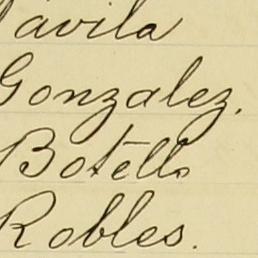 Davila
Gonzalez.
Botello
Robles.